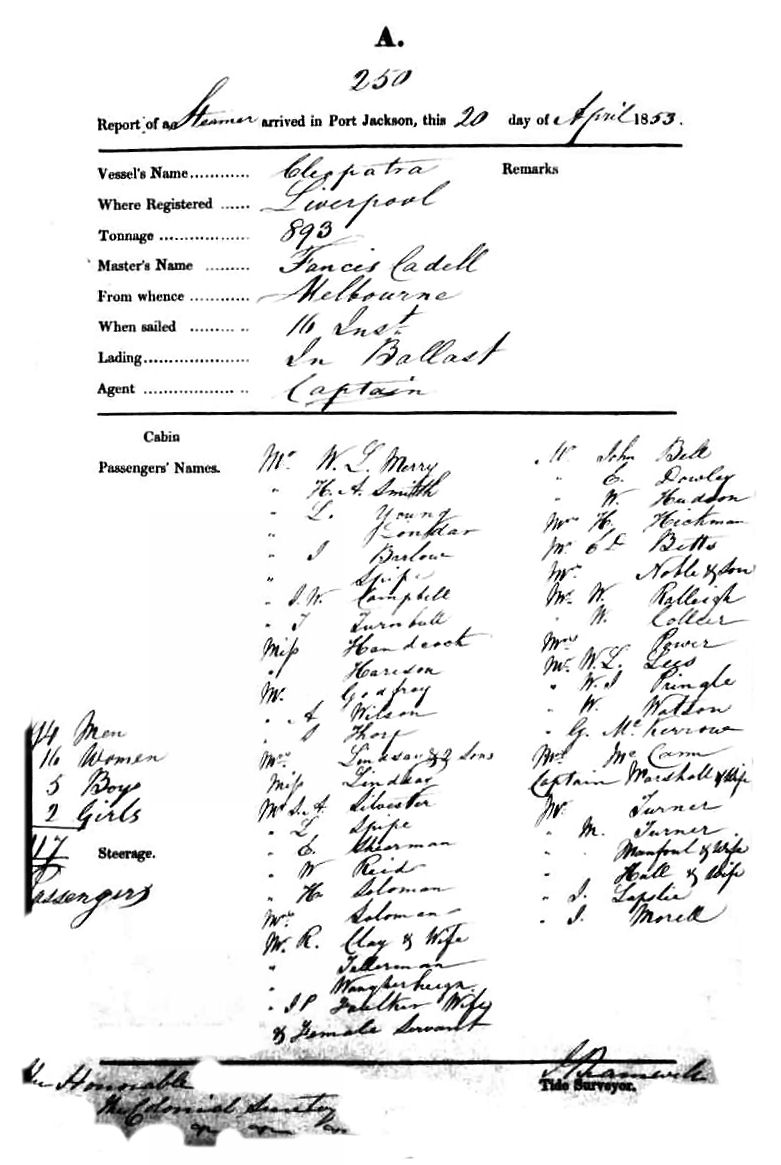 A.
250
Report of a Steamer arrived in Port Jackson, this 20 day of April 1853.
Vessel's Name............ Cleopatra
Remarks
Where Registered ...... Liverpool
Tonnage .................. 893
Master's Name ......... Fancis Cadell
From whence ............ Melbourne
When sailed ......... .. 16 Inst.
Lading..................... In Ballast
Agent ................. .. Captain
Cabin
Passengers' Names.
Mr W. L. Merry
" H. A. Smith
" L. Young
" Lonsdar
" J Barlow
" Spipe
" J. W. Campbell
" T Turnbull
Miss Handcock
" Harison
Mr. Godfray
" A Wilson
" J Thorp
Mrs Lindsar & 2 Sons
Miss Lindsay
Mr S. A. Silvester
" L Spipe
" E. Shearman
" W Reid
" H. Soloman
Mrs Soloman
Mr. R. Clay & Wife
" Tallerman
"
" J P Faulkner Wife
& Female Servant
Mr John Bell
" E. Dowley
" W. Hudson
Mrs H. Hickman
Mr. E D Betts
Mrs Noble & Son
Mr. W. Ralleigh
" W. Collier
Mrs Power
Mr. W. L. Lees
" W. J Pringle
" W. Watson
" G. Mc Kerrow
Mrs Mc Cann
Captain Marshall & Wife
Mr Turner
" M. Turner
" & Wife
" Hall & Wife
" J. Lapslie
" J. Morell
94 Men
16 Women
5 Boys
2 Girls
117
Passengers
Steerage.
Tide Surveyor.
The Honorable
The Colonial Secretary